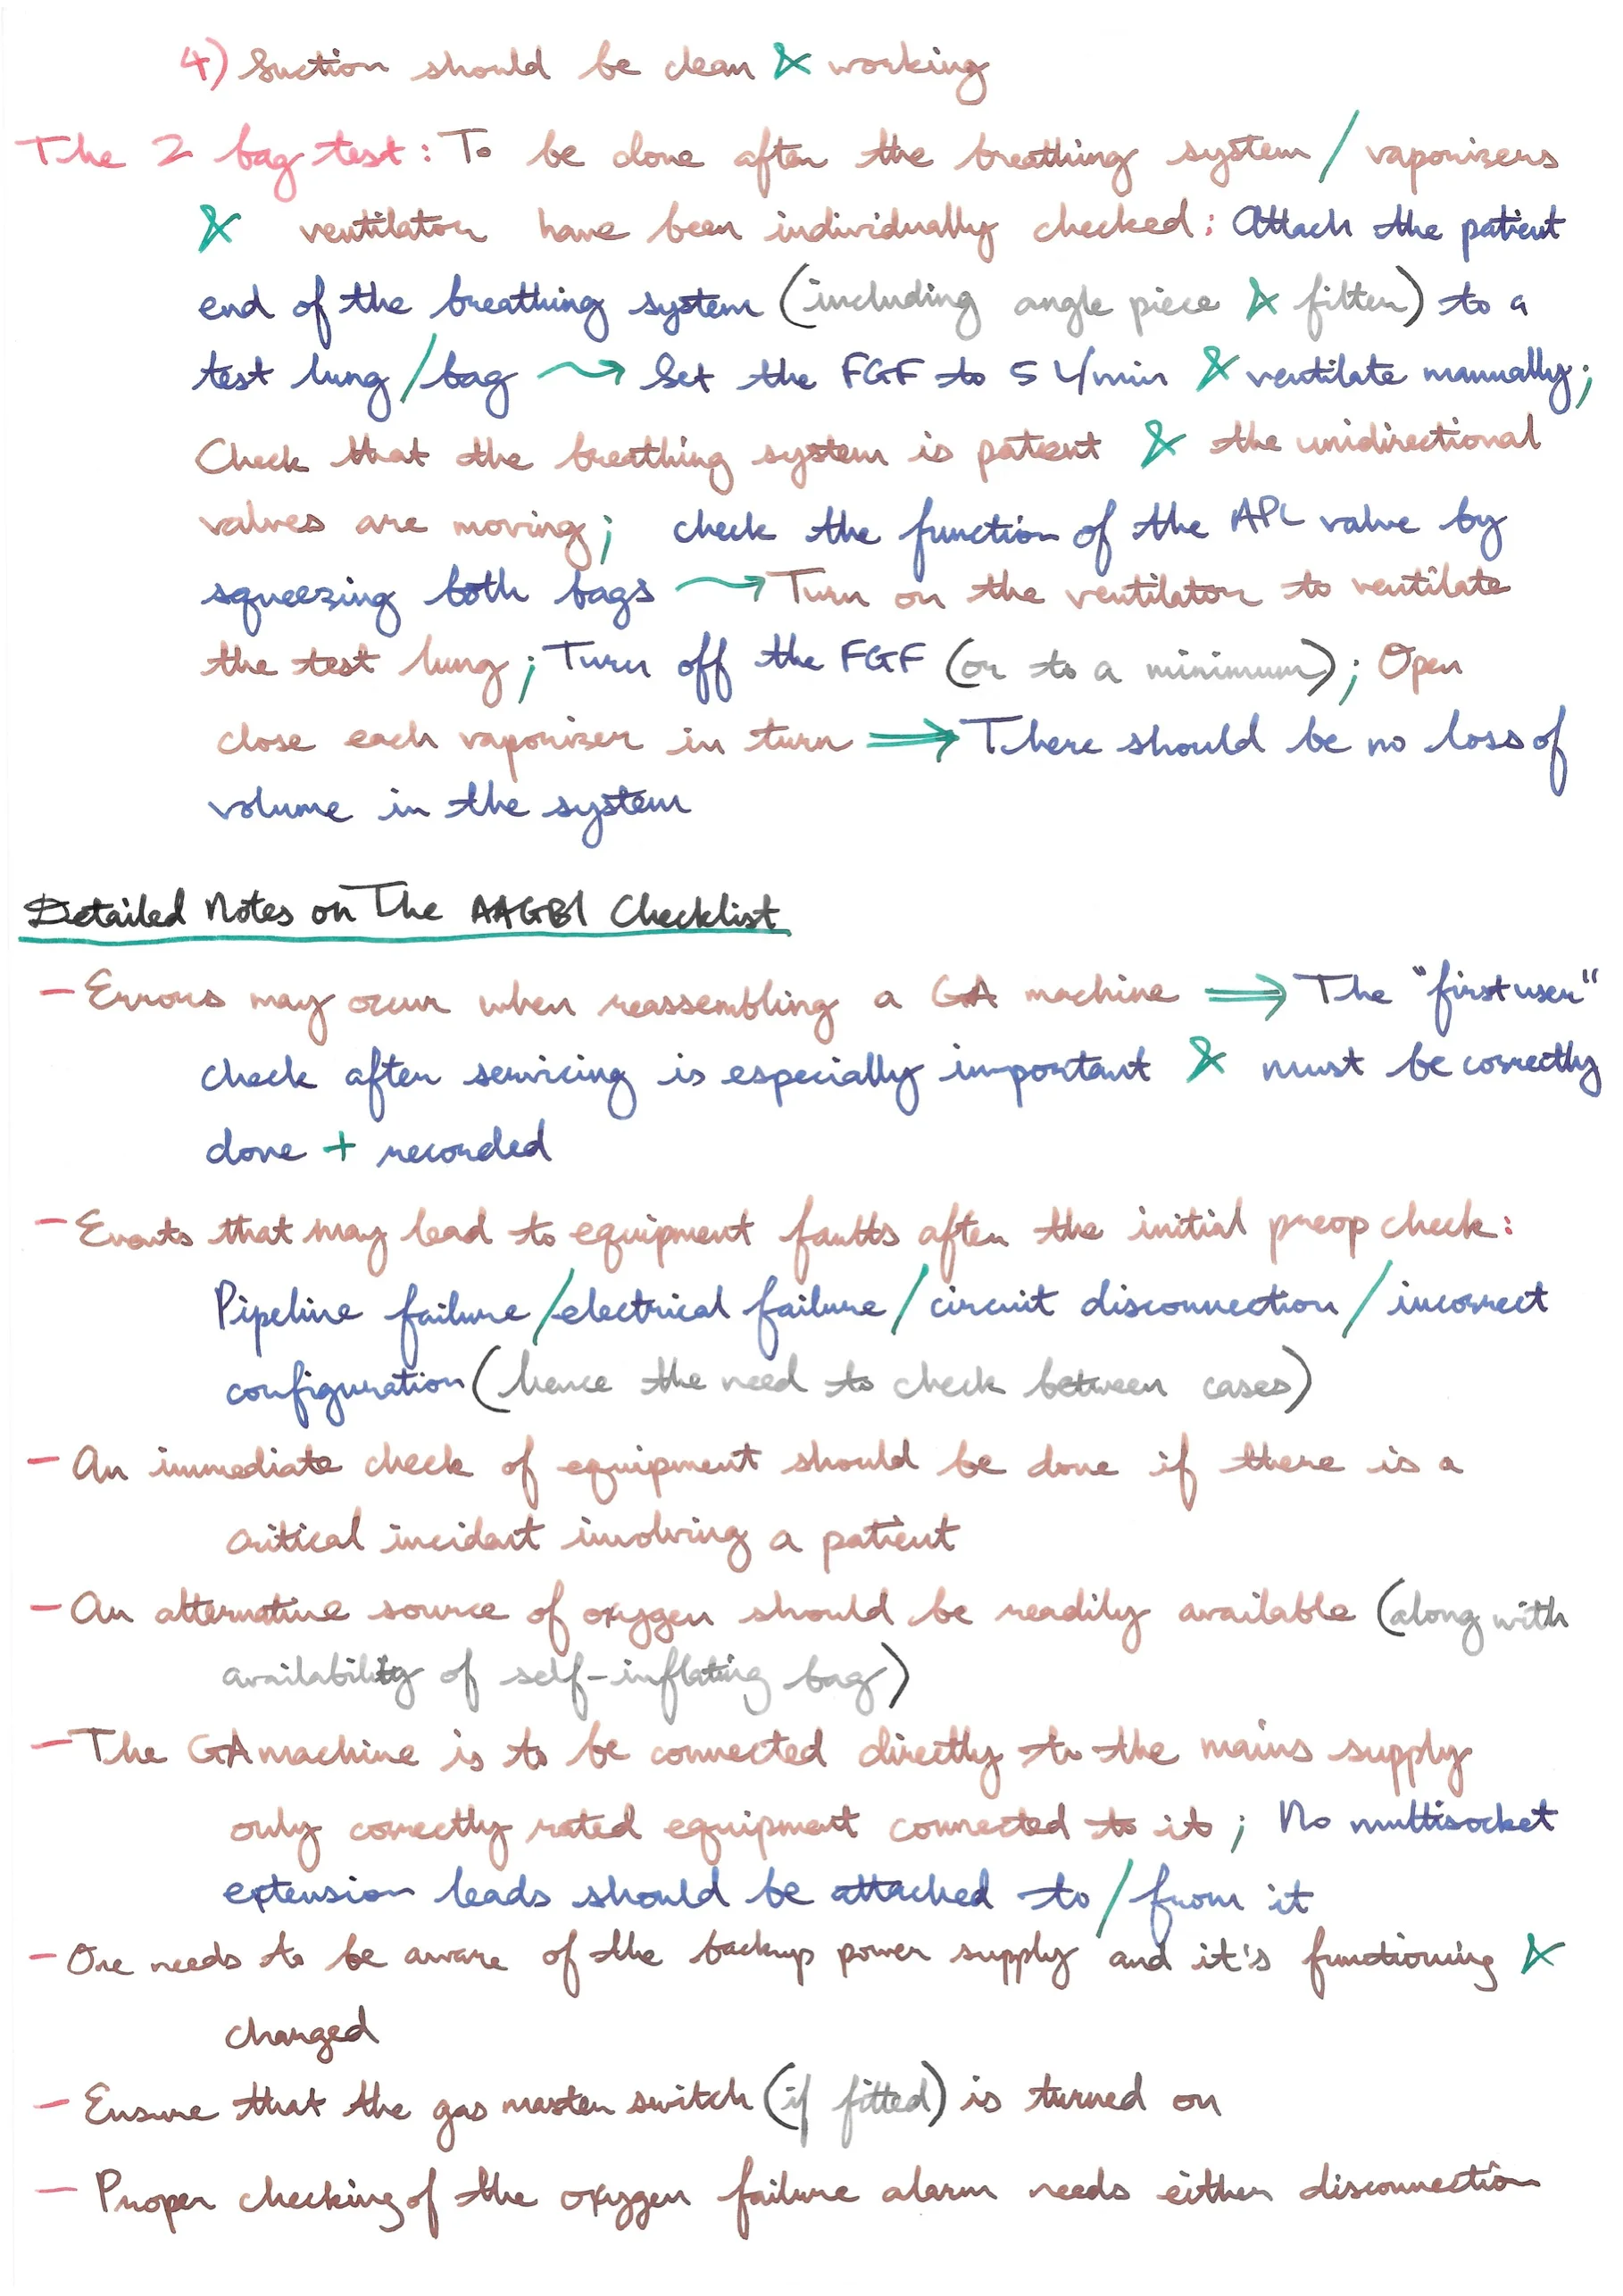 4) Suction should be clean & working
The 2 bag test: To be done after the breathing system / vaporizers
& ventilator have been individually checked: Attach the patient
end of the breathing system (including angle piece & filter) to a
test lung / bag → Set the FGF to 5 L/min & ventilate manually;
Check that the breathing system is patent & the unidirectional
valves are moving; check the function of the APL valve by
squeezing both bags → Turn on the ventilator to ventilate
the test lung; Turn off the FGF (or to a minimum); Open
close each vaporizer in turn ⇒ There should be no loss of
volume in the system
Detailed Notes on The AAGBI Checklist
- Errors may occur when reassembling a GA machine ⇒ The "first user"
check after servicing is especially important & must be correctly
done + recorded
- Events that may lead to equipment faults after the initial preop check:
Pipeline failure / electrical failure / circuit disconnection / incorrect
configuration (hence the need to check between cases)
- An immediate check of equipment should be done if there is a
critical incident involving a patient
- An alternative source of oxygen should be readily available (along with
availability of self-inflating bag)
- The GA machine is to be connected directly to the mains supply
only correctly rated equipment connected to it; No multisocket
extension leads should be attached to / from it
- One needs to be aware of the backup power supply and it's functioning &
charged
- Ensure that the gas master switch (if fitted) is turned on
- Proper checking of the oxygen failure alarm needs either disconnection